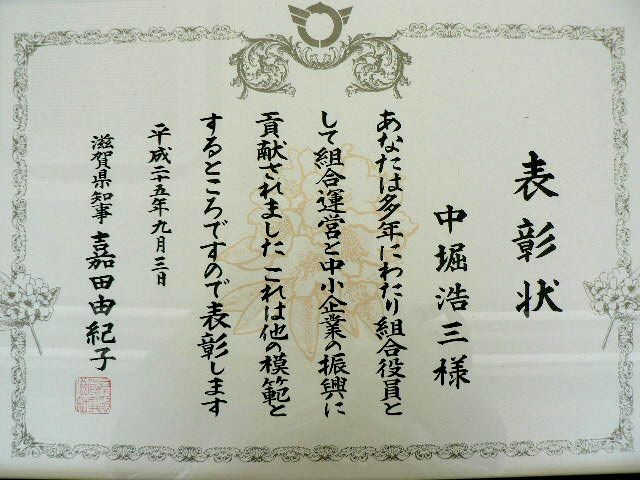 表彰状
中堀浩三様
あなたは多年にわたり組合役員と
して組合運営と中小企業の振興に
貢献されましたこれは他の模範と
するところですので表彰します
平成二十五年九月三日
滋賀県知事 嘉田由紀子